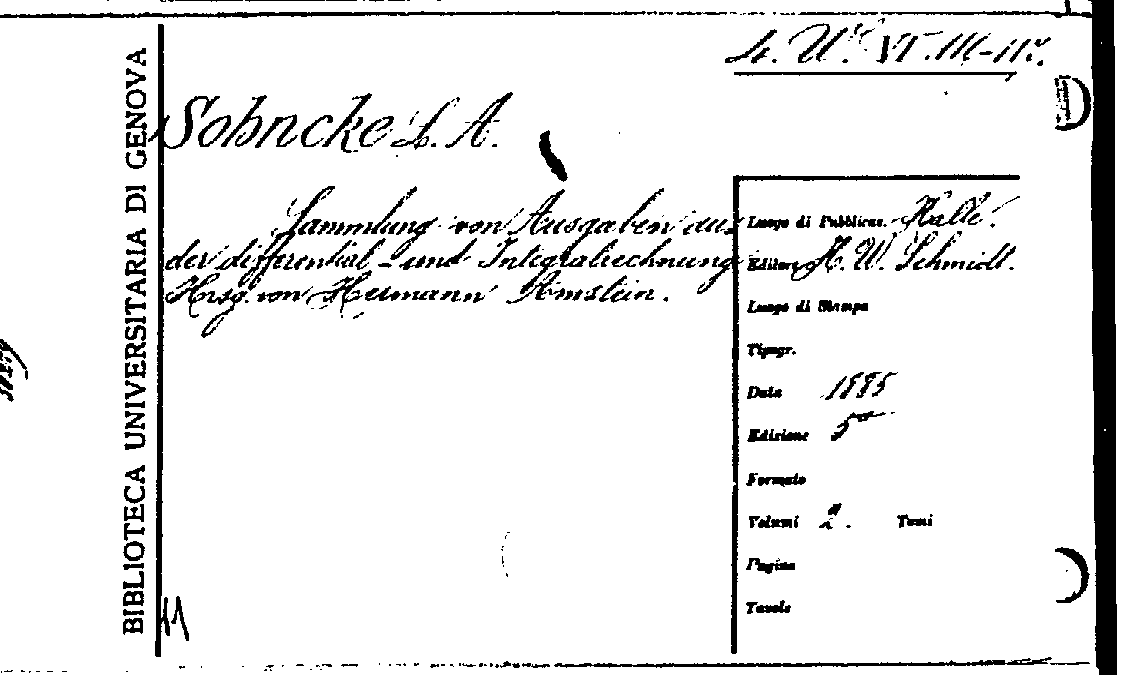 BIBLIOTECA UNIVERSITARIA DI GENOVA
Sohncke L. A.
Sammlung von Ausgaben aus
der differential - und Integralrechnung
Hrsg. von Hermann Amstein.
Luogo di Pubblicaz. Halle.
Editore H. W. Schmidt.
Luogo di Stampa
Tipogr.
Data 1885
Edizione 5ª
Formato
Volumi 2. Tomi
Pagine
Tavole
11